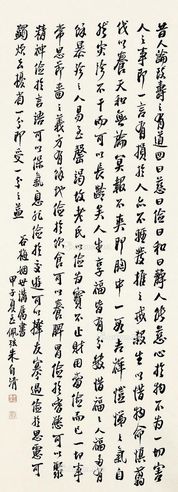 昔人論致壽之道有四曰慈曰儉曰和曰靜人能慈心於物不為一切害
人之事即一言有損於人亦不輕發推之戒殺生以惜物命慎翦
伐以養天和無論冥報不爽即胸中一段吉祥愷悌之氣自
然災沴不干而可以長齡矣人生享福皆有分數惜福之人福有
餘暴殄之人易至罄竭故老氏以儉為寶不止財用當儉而已一切事
常思節嗇之義方有餘地儉於飲食可以養脾胃儉於嗜慾可以聚
精神儉於言語可以保氣息儉於交遊可以擇友寡過儉於思慮可
蠲煩去擾省一分即受一分之益
谷梅姻世講屬書
甲子夏五佩弦朱自清